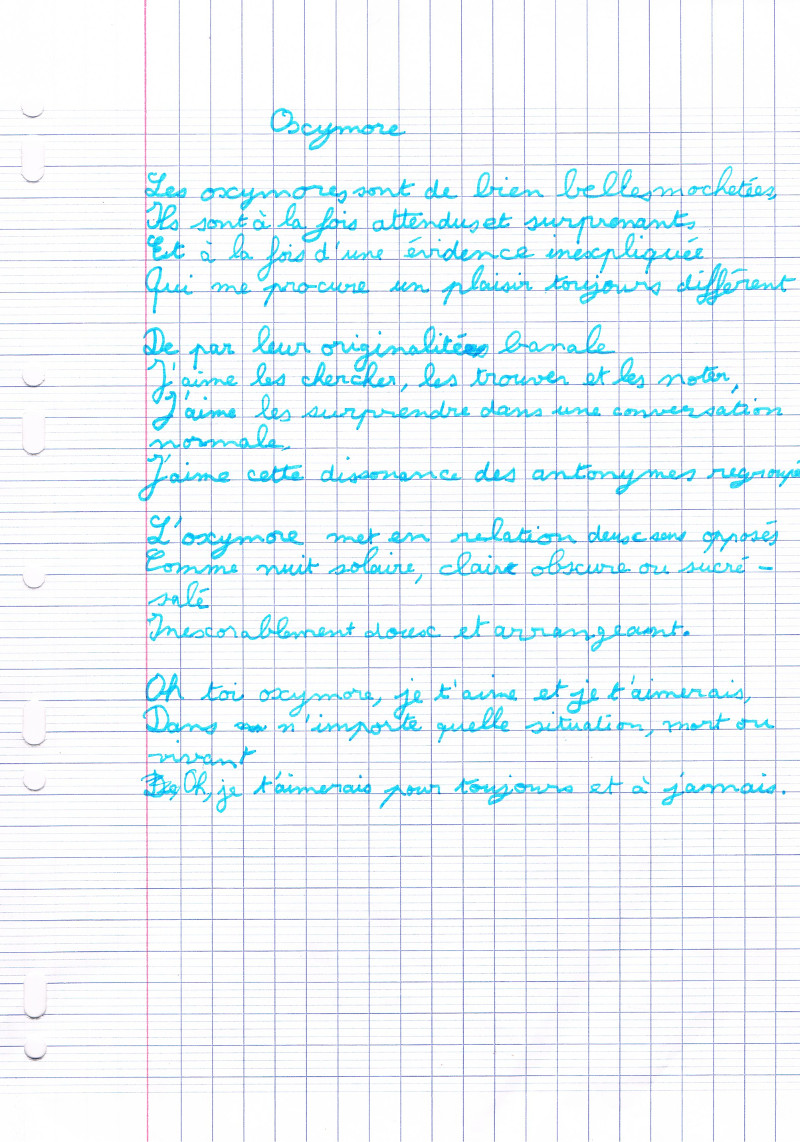 Oxymore
Les oxymores sont de bien belles mochetées,
Ils sont à la fois attendus et surprenants
Et à la fois d'une évidence inexpliquée
Qui me procure un plaisir toujours différent
De par leur originalitées banale
J'aime les chercher, les trouver et les noter,
J'aime les surprendre dans une conversation
normale,
J'aime cette dissonence des antonymes regroupé
L'oxymore met en relation deux sens opposés
Comme nuit solaire, claire obscure ou sucré-
salé
Inexorablement doux et arrangeant.
Oh toi oxymore, je t'aime et je t'aimerais,
Dans n'importe quelle situation, mort ou
vivant
Oh, je t'aimerais pour toujours et à jamais.